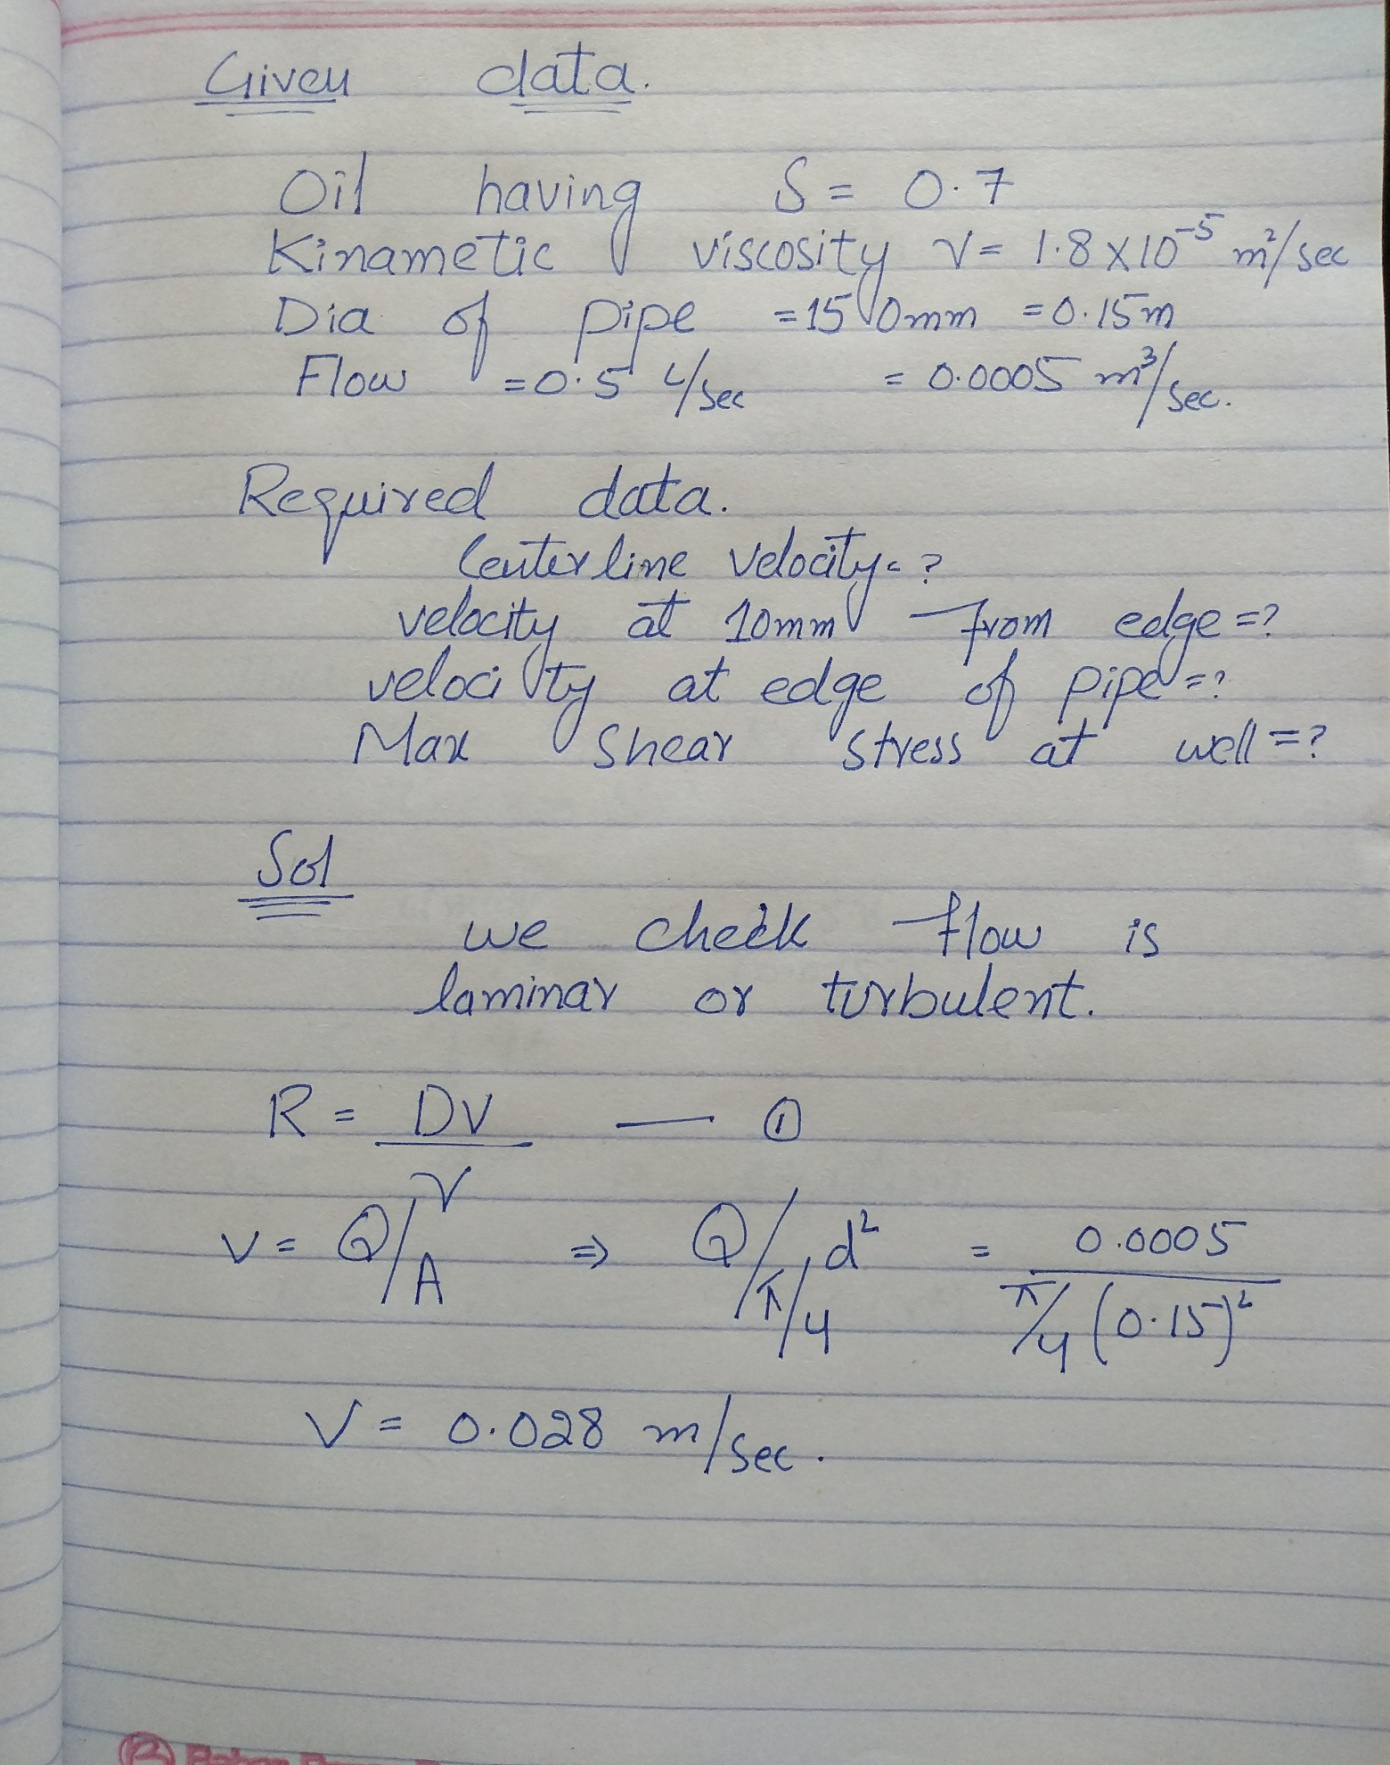 Given data.
Oil having S = 0.7
Kinametic viscosity ν = 1.8 x 10⁻⁵ m²/sec
Dia of pipe = 150mm = 0.15m
Flow = 0.5 L/sec = 0.0005 m³/sec.
Required data.
Centerline velocity = ?
velocity at 10mm from edge = ?
velocity at edge of pipe = ?
Max shear stress at well = ?
Sol
we check flow is
laminar or turbulent.
R = DV/ν — ①
V = Q/A ⇒ Q/π/4 d² = 0.0005/π/4 (0.15)²
V = 0.028 m/sec.